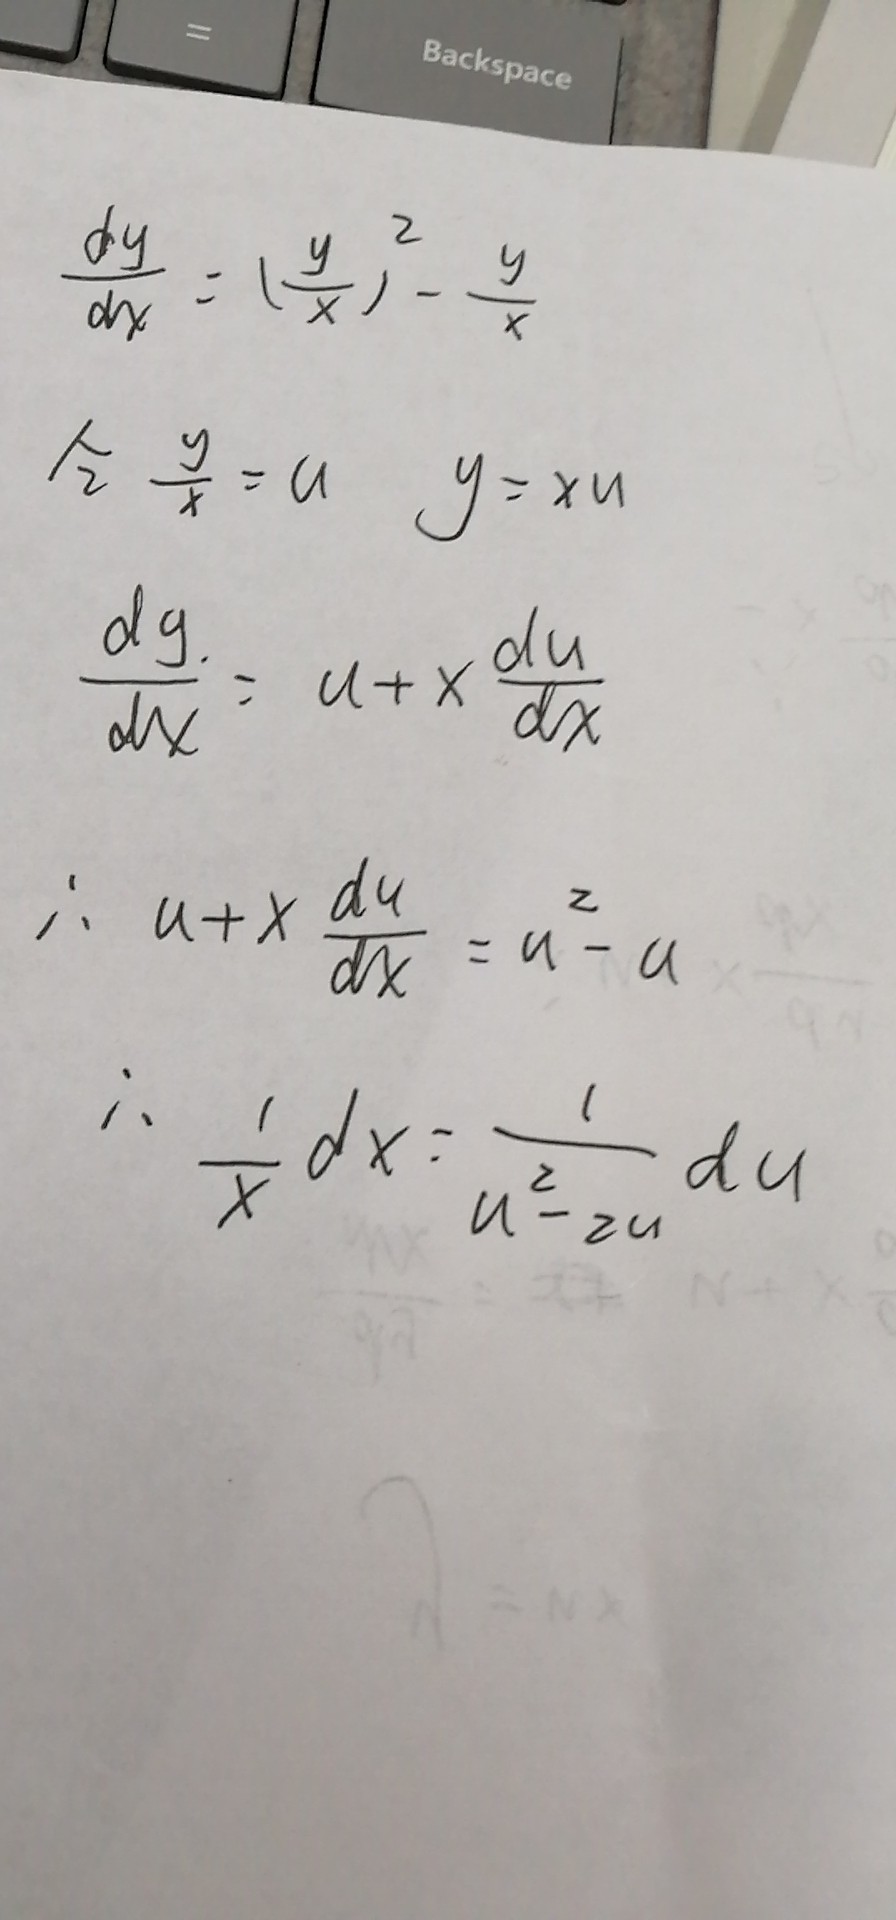 = Backspace
dy/dx = (y/x)² - y/x
令 y/x = u y = xu
dy/dx = u + x du/dx
∴ u + x du/dx = u² - u
∴ 1/x dx = 1/(u² - 2u) du